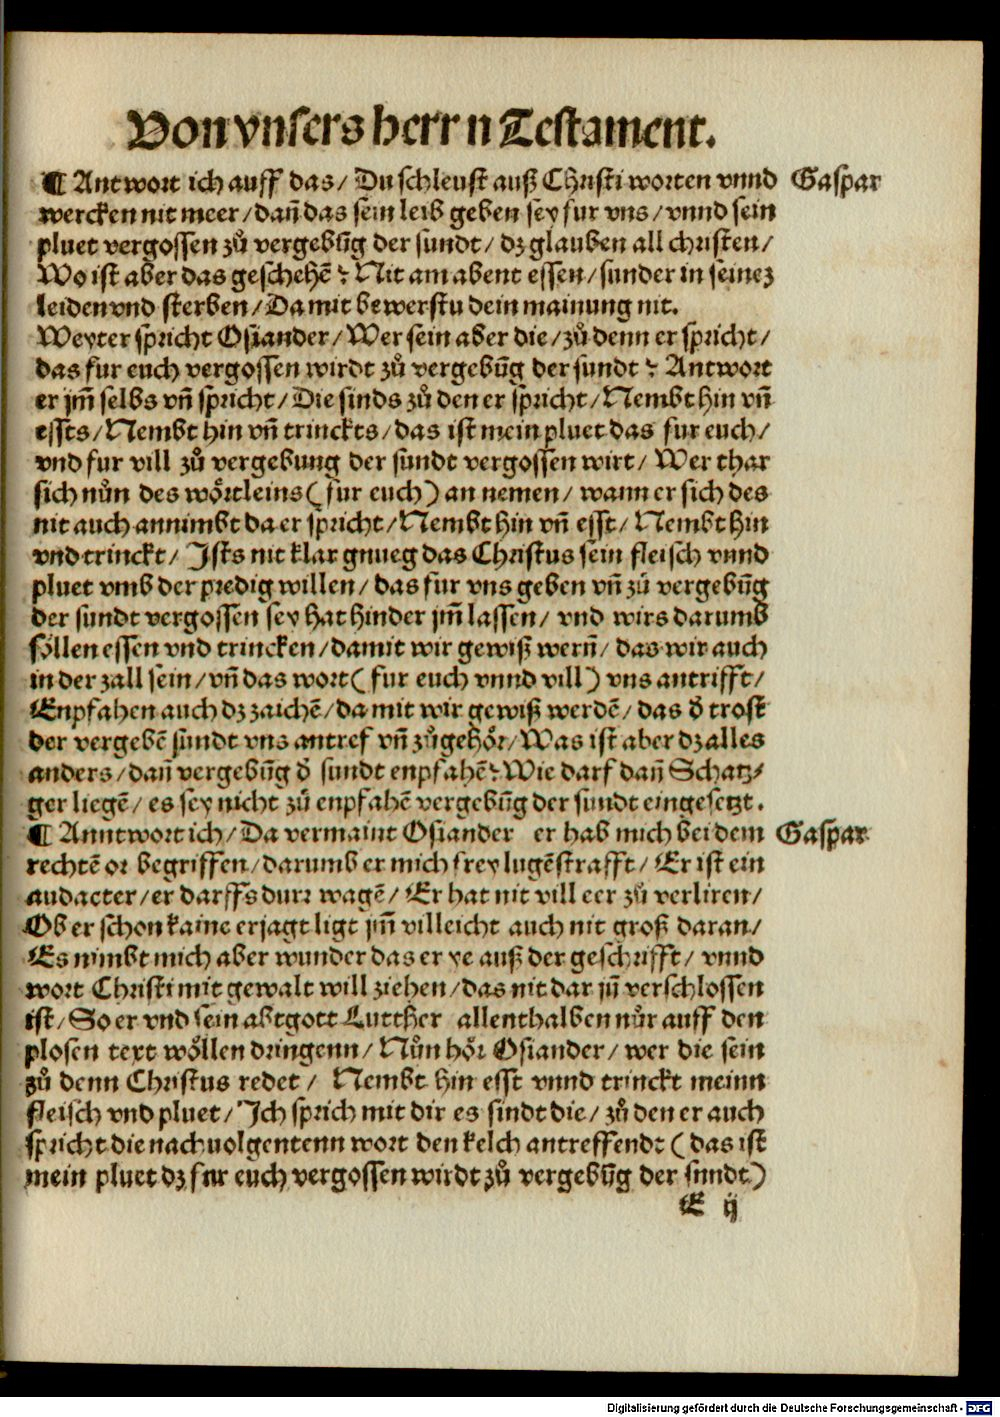 Von vnsers herrn Testament.
¶ Antwort ich auff das/ Du schleust auß Christi worten vnnd Gaspar
wercken nit meer/ dañ das sein leib geben sey fur vns/ vnnd sein
pluet vergossen zů vergebũg der sundt/ dz glauben all christen/
Wo ist aber das geschehẽ? Nit am abent essen/ sunder in seinez
leiden vnd sterben/ Damit bewerstu dein mainung nit.
Weyter spricht Osiander/ Wer sein aber die/ zů denn er spricht/
das fur euch vergossen wirdt zů vergebũg der sundt? Antwort
er jm̃ selbs vñ spricht/ Die sinds zů den er spricht/ Nembt hin vñ
essts/ Nembt hin vñ trinckts/ das ist mein pluet das fur euch/
vnd fur vill zů vergebung der sundt vergossen wirt/ Wer thar
sich nůn des wörtleins (fur euch) an nemen/ wann er sich des
nit auch annimbt da er spricht/ Nembt hin vñ esst/ Nembt hin
vnd trinckt/ Ists nit klar gnueg das Christus sein fleisch vnnd
pluet vmb der predig willen/ das fur vns geben vñ zů vergebũg
der sundt vergossen sey hat hinder jm̃ lassen/ vnd wirs darumb
söllen essen vnd trincken/ damit wir gewiß werñ/ das wir auch
in der zall sein/ vñ das wort (fur euch vnnd vill) vns antrifft/
Enpfahen auch dz zaichẽ/ da mit wir gewiß werdẽ/ das d̕ trost
der vergebẽ sundt vns antref vñ zůgehör/ Was ist aber dz alles
anders/ dañ vergebũg d̕ sundt enpfahẽ? Wie darf dañ Schatz⸗
ger liegẽ/ es sey nicht zů enpfahẽ vergebũg der sundt eingesetzt.
¶ Anntwort ich/ Da vermaint Osiander er hab mich bei dem Gaspar
rechtẽ or begriffen/ darumb er mich frey lugẽstrafft/ Er ist ein
audacter/ er darffs durr wagẽ/ Er hat nit vill eer zů verliren/
Ob er schon kaine erjagt ligt jm̃ villeicht auch nit groß daran/
Es nimbt mich aber wunder das er ye auß der geschrifft/ vnnd
wort Christi mit gewalt will ziehen/ das nit dar jñ verschlossen
ist/ So er vnd sein abtgott Lutther allenthalben nůr auff den
plosen text wöllen dringenn/ Nůn hör Osiander/ wer die sein
zů denn Christus redet/ Nembt hin esst vnnd trinckt meinn
fleisch vnd pluet/ Ich sprich mit dir es sindt die/ zů den er auch
spricht die nachuolgentenn wort den kelch antreffendt (das ist
mein pluet dz fur euch vergossen wirdt zů vergebũg der sundt)
E ij
Digitalisierung gefördert durch die Deutsche Forschungsgemeinschaft - DFG